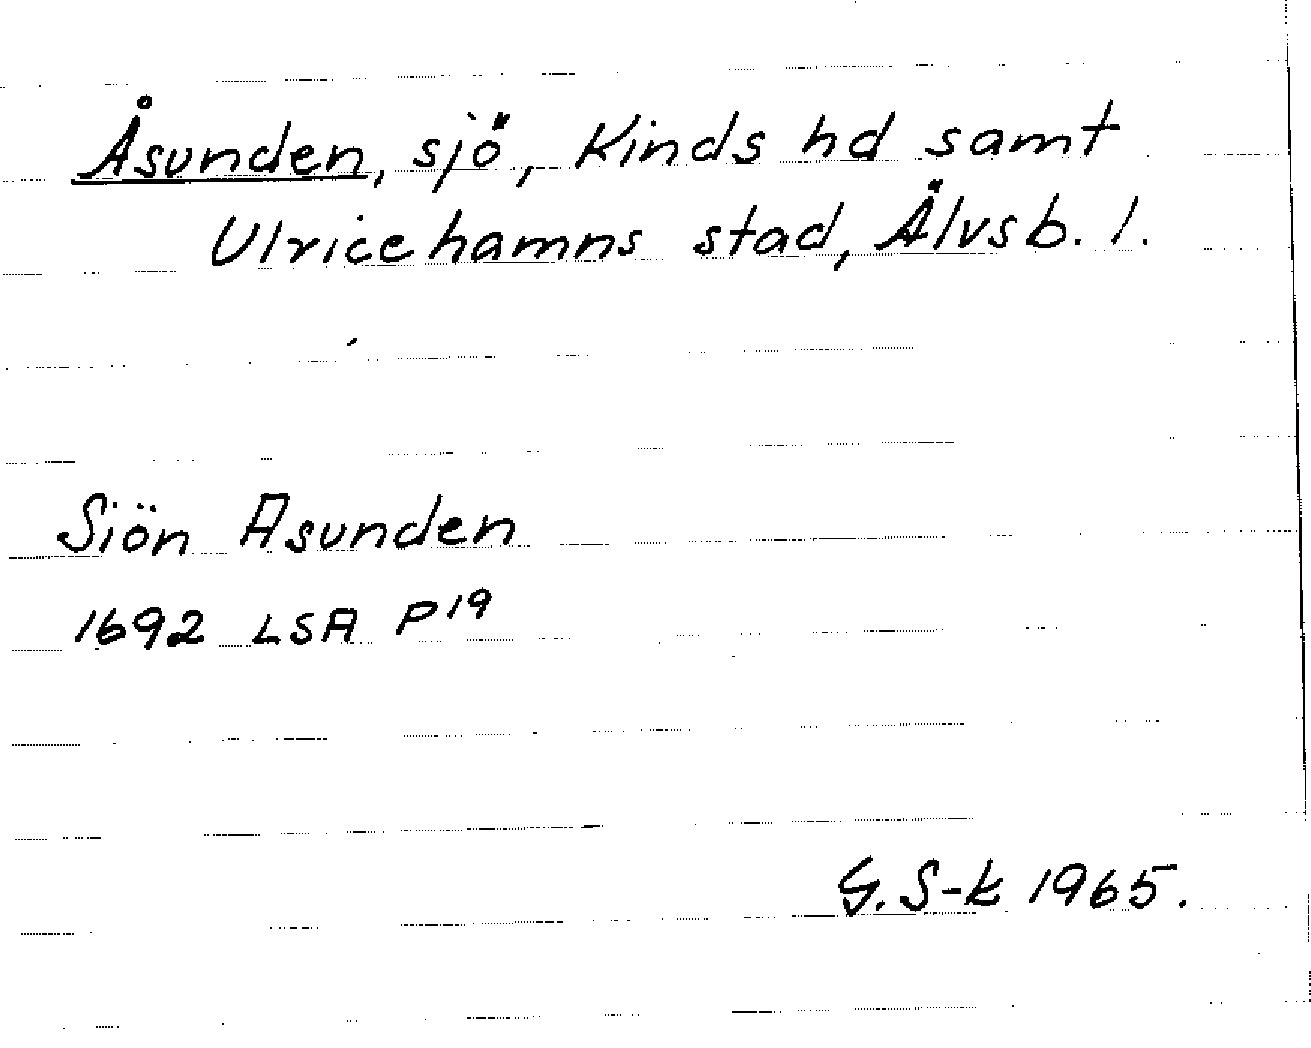 Åsunden, sjö, Kinds hd samt
Ulricehamns stad, Älvsb. l.
Siön Asunden
1692 LSA P19
G. S-k 1965.